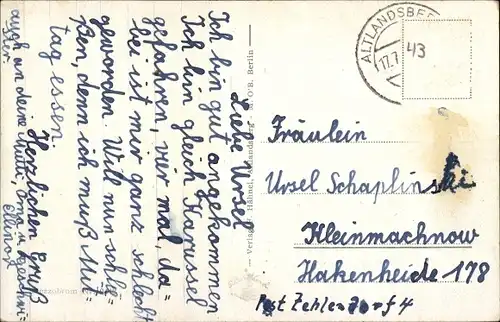 Liebe Ursel
Ich bin gut angekommen
Ich bin gleich Karussel
gefahren, vier mal, da=
bei ist mir ganz schlecht
geworden. Will nun schlie=
ßen, denn ich muß Mit=
tag essen
Herzlichen Gruß
auch an deine Mutti, Oma u. Geschwi=
ster
ALTLANDSBE
17.7
43
Fräulein
Ursel Schaplinski
Kleinmachnow
Hakenheide 178
Post Zehlendorf 4
Verlag Hähnel, Altlandsberg
Berlin